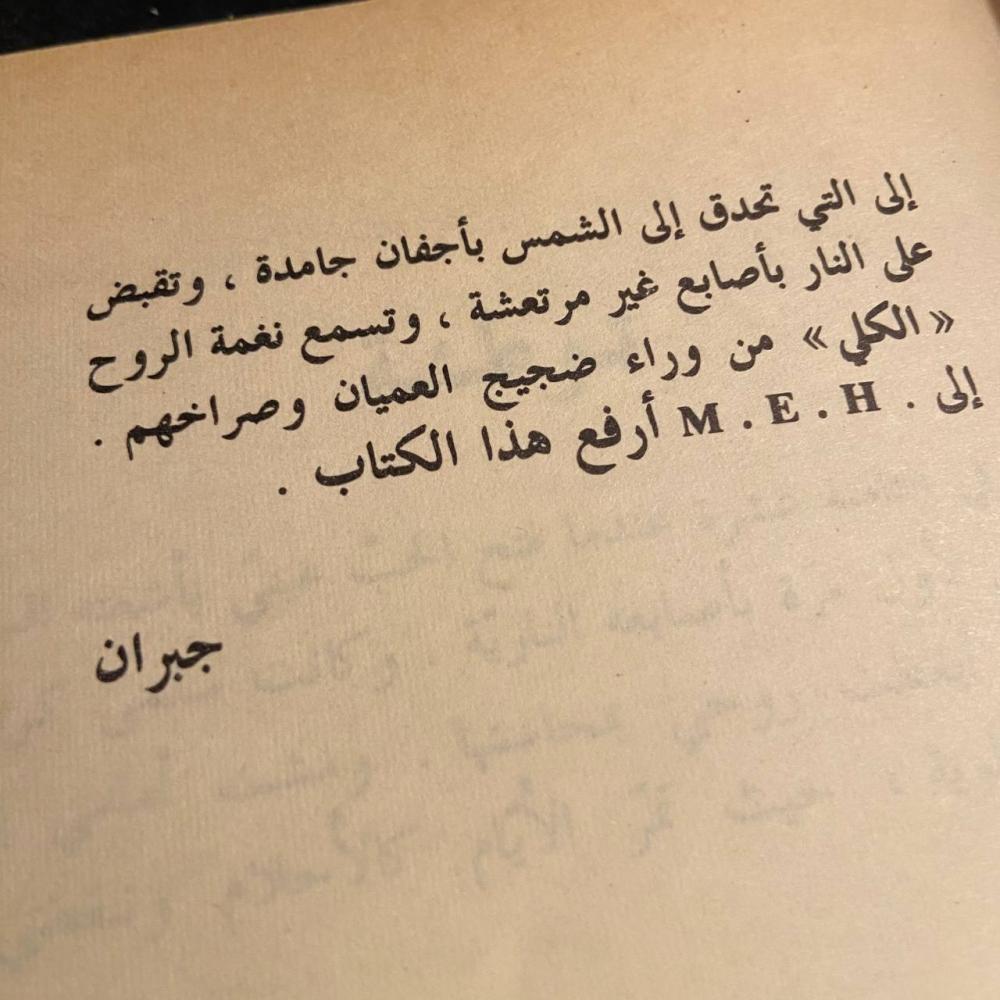 إلى التي تحدق إلى الشمس بأجفان جامدة ، وتقبض
على النار بأصابع غير مرتعشة ، وتسمع نغمة الروح
« الكلي » من وراء ضجيج العميان وصراخهم .
إلى . M . E . H أرفع هذا الكتاب .
جبران